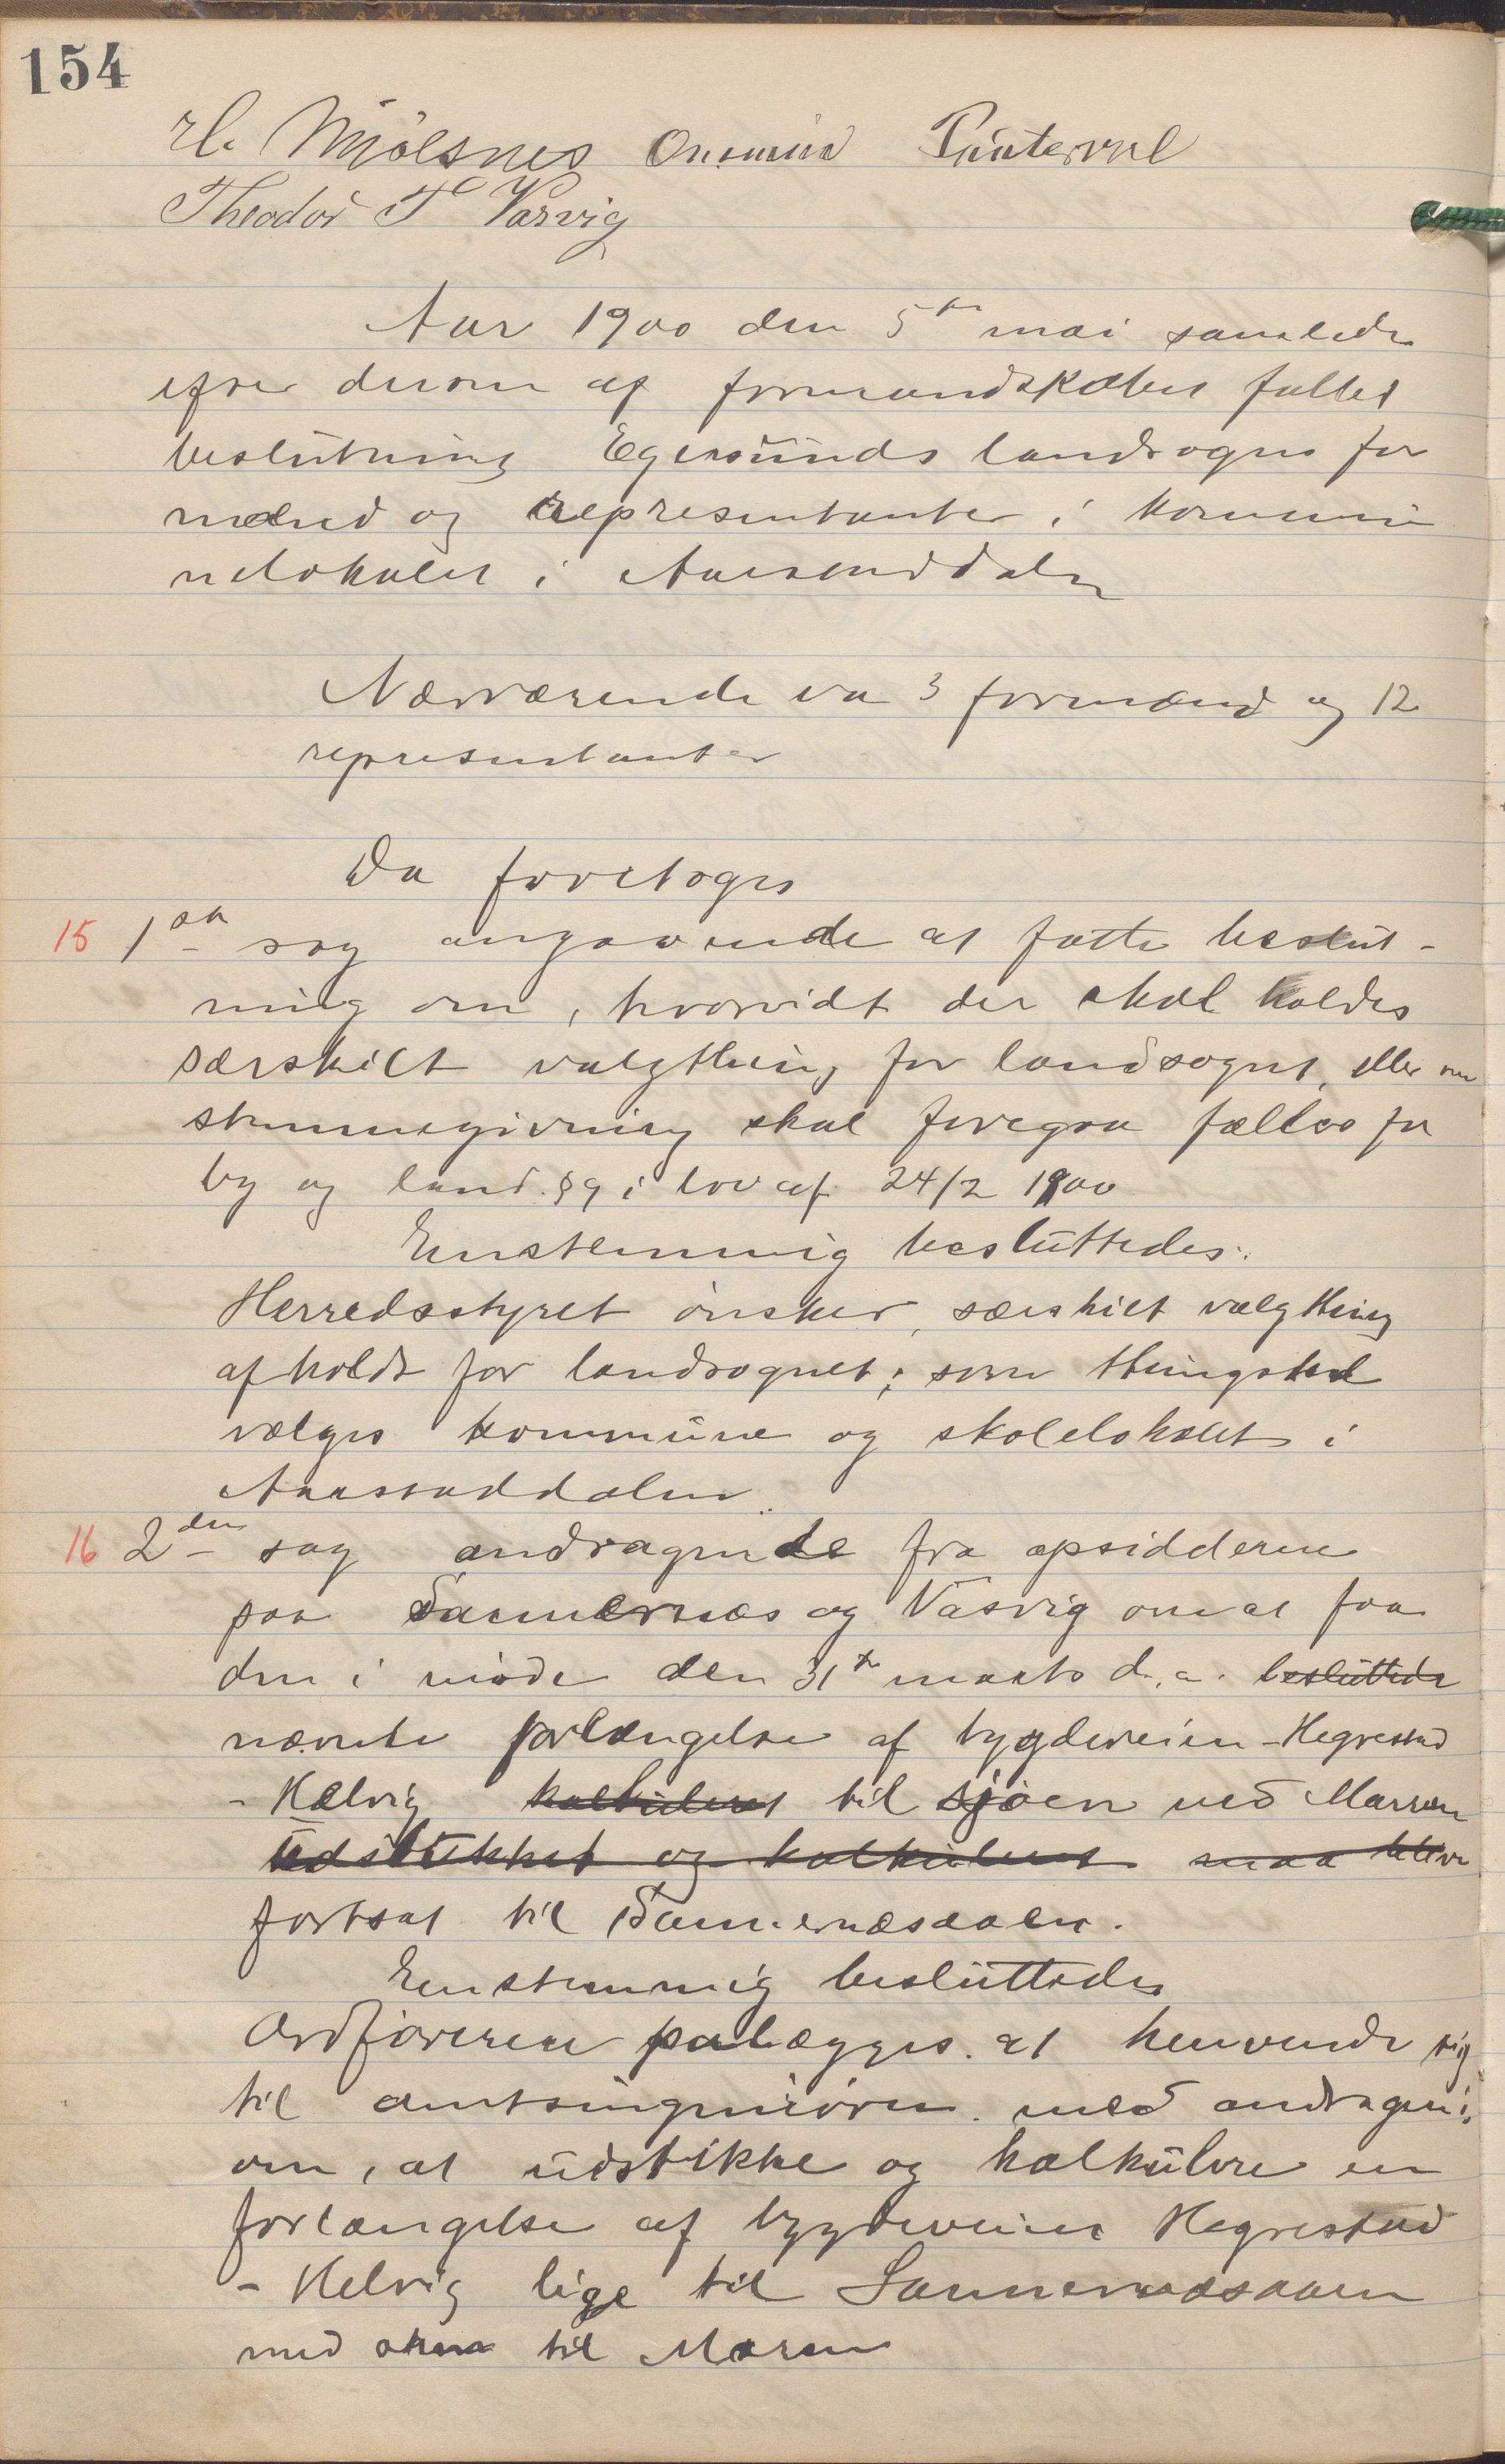 154
Mjølsnes Onamund
Theodor T Varvig
Aar 1900 den 5te mai samlede
efter derom af formandskabet fattet
beslutning Egersunds landsogns for
mænd og representanter i kommu
nelokalet i Aarstaddalen
Nærværende var 3 formænd og 12
representanter
Da foretoges
15 1ste sag angaaende at fatte beslut-
ning om, hvorvidt der skal holdes
særskilt valgthing for landsognet, eller om
stemmegivning skal foregaa fælles for
by og land. §9 i lov af 24/2 1900
Enstemmig besluttedes:
Herredsstyret ønsker, særskilt valgthing
afholdt for landsognet; som thingsted
vælges kommune og skolelokalet i
Aarstaddalen
16 2den sag andragende fra opsidderne
paa Sammernæs og Vasvig om at faa
den i møde den 31te marts d.a. besluttede
nævnte forlængelse af bygdeveien - Hegrestad
- Hælvig kalkuleret til sjøen ved Marren
udstukket og kalkuleret maa blive
fortsat til Samernæsaaen.
Enstemmig besluttedes
Ordføreren paalægges at henvende sig
til amtsingeniøren med andragen
om, at udstikke og kalkulere en
forlængelse af bygdeveien Hegrestad
- Helvig lige til Sannernæsaaen
med arm til Maren